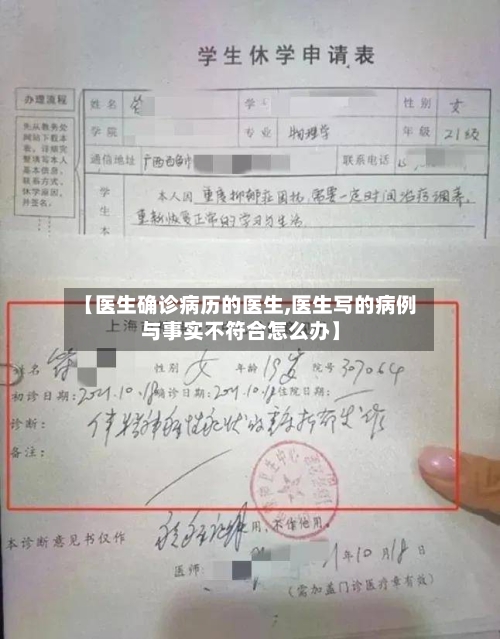 学生休学申请表
办理流程
先从教务处
网站下载本
表，详细完
整填写本人
基本信息、
联系方式、
休学原因，
并签名。
姓名 学 性别 女
学院 专业 物理学 年级 21级
通信地址 广西百色市 联系电话
学生本
本人因 重度抑郁症困扰，需要一定时间治疗调养，
重新恢复正常的学习与生活
【医生确诊病历的医生,医生写的病例
与事实不符合怎么办】
上海
姓名 性别 女 年龄 19岁 院号 307064
初诊日期：2021.10.18 确诊日期：2021.10.18 住院日期：
诊断： 伴精神病性症状的重度抑郁发作
备注：
卫生中心
本诊断意见书仅作 用，不作他用。
医师： 年10月18日
（需加盖门诊医疗章有效）